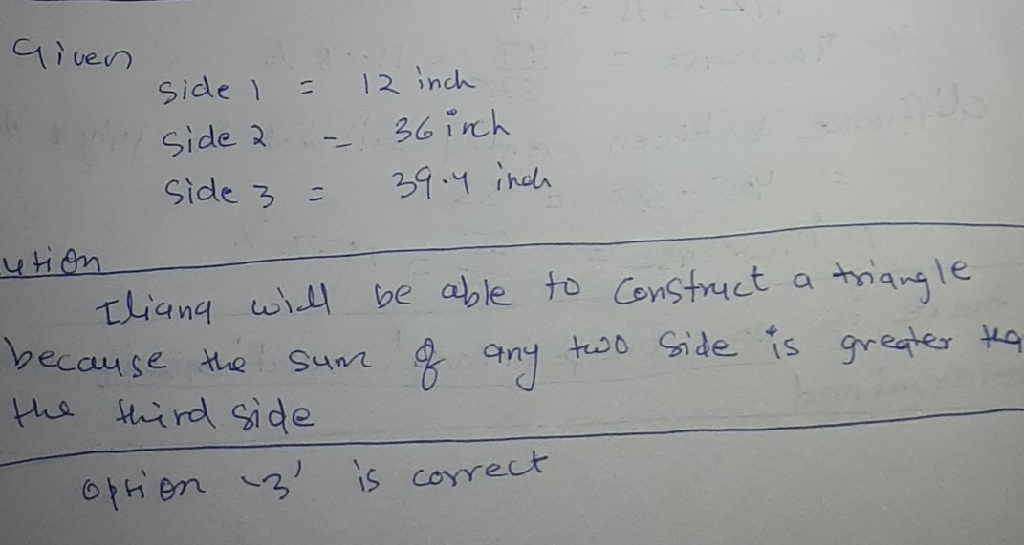 Given
side 1 = 12 inch
side 2 - 36 inch
side 3 = 39.4 inch
ution
Iliana will be able to construct a triangle
because the sum of any two side is greater tha
the third side
option '3' is correct